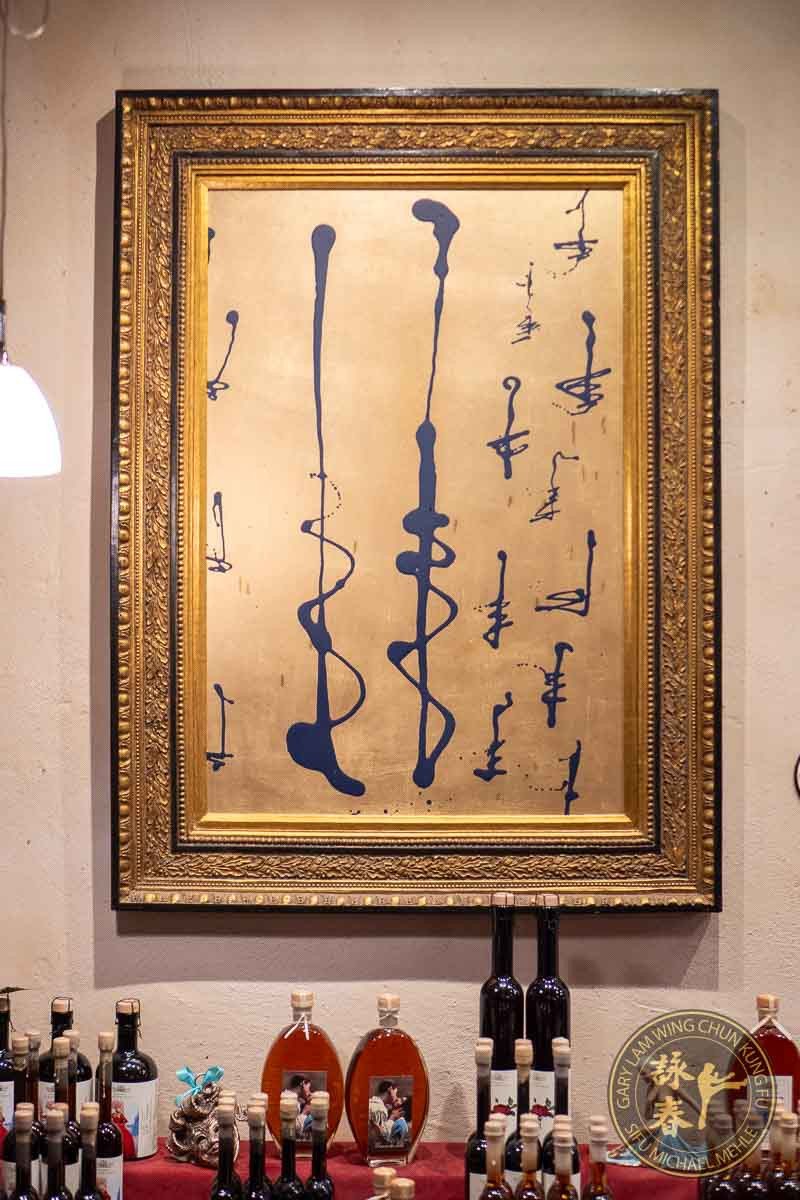 GARY LAM WING CHUN KUNG FU
詠
春
SIFU MICHAEL MEHLE